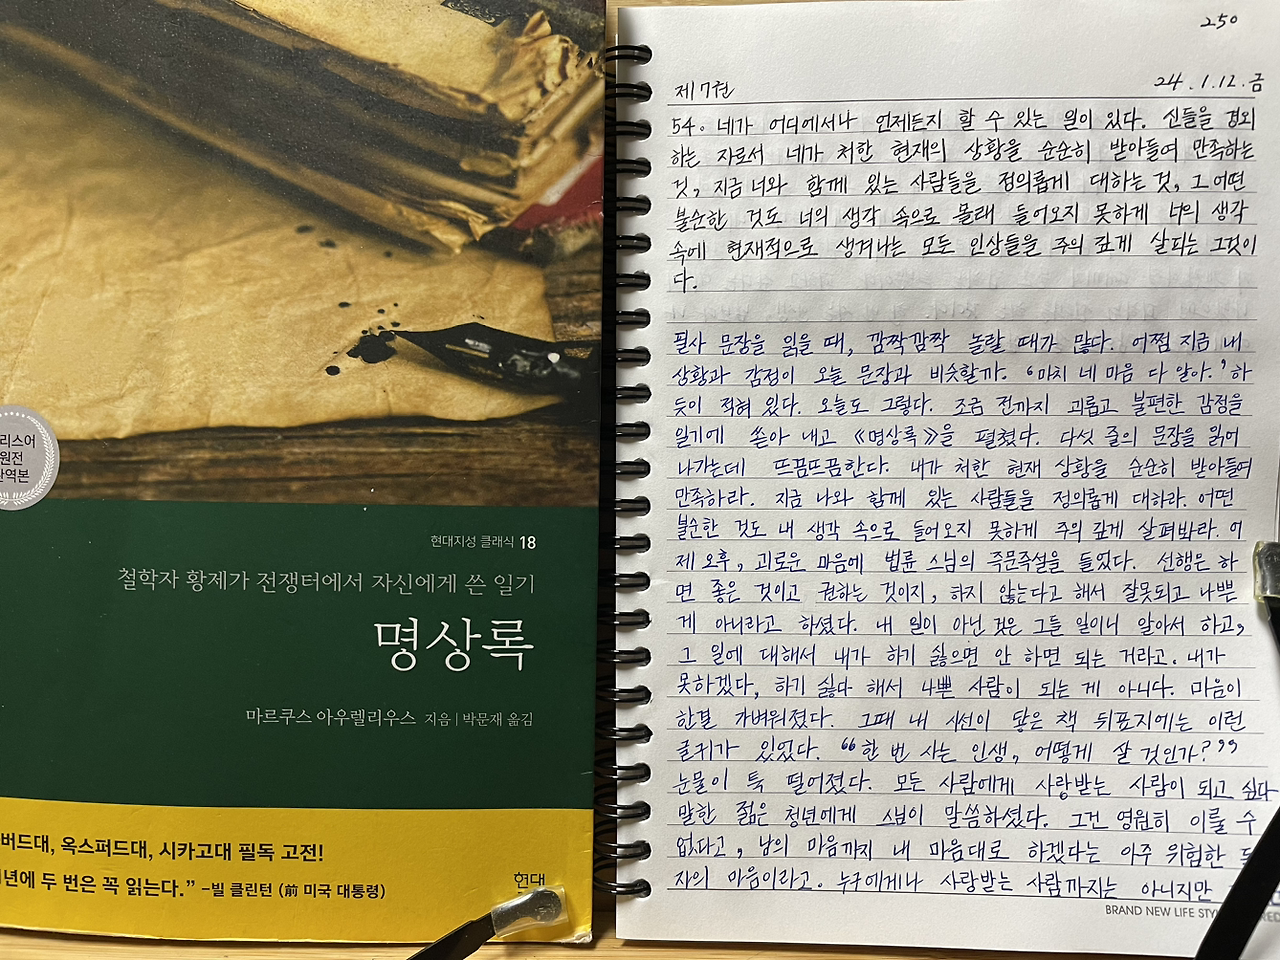 리스어
원전
완역본
현대지성 클래식 18
철학자 황제가 전쟁터에서 자신에게 쓴 일기
명상록
마르쿠스 아우렐리우스 지음 | 박문재 옮김
버드대, 옥스퍼드대, 시카고대 필독 고전!
년에 두 번은 꼭 읽는다.” –빌 클린턴 (前 미국 대통령)
현대
250
제7권 24.1.12.금
54. 네가 어디에서나 언제든지 할 수 있는 일이 있다. 신들을 경외
하는 자로서 네가 처한 현재의 상황을 순순히 받아들여 만족하는
것, 지금 너와 함께 있는 사람들을 정의롭게 대하는 것, 그 어떤
불순한 것도 너의 생각 속으로 몰래 들어오지 못하게 너의 생각
속에 현재적으로 생겨나는 모든 인상들을 주의 깊게 살피는 그것이
다.
필사 문장을 읽을 때, 깜짝깜짝 놀랄 때가 많다. 어쩜 지금 내
상황과 감정이 오늘 문장과 비슷할까. ‘마치 네 마음 다 알아.’ 하
듯이 적혀 있다. 오늘도 그렇다. 조금 전까지 괴롭고 불편한 감정을
일기에 쏟아 내고 《명상록》을 펼쳤다. 다섯 줄의 문장을 읽어
나가는데 뜨끔뜨끔한다. 내가 처한 현재 상황을 순순히 받아들여
만족하라. 지금 나와 함께 있는 사람들을 정의롭게 대하라. 어떤
불순한 것도 내 생각 속으로 들어오지 못하게 주의 깊게 살펴봐라. 어
제 오후, 괴로운 마음에 법륜 스님의 즉문즉설을 들었다. 선행은 하
면 좋은 것이고 권하는 것이지, 하지 않는다고 해서 잘못되고 나쁜
게 아니라고 하셨다. 내 일이 아닌 것은 그들 일이니 알아서 하고,
그 일에 대해서 내가 하기 싫으면 안 하면 되는 거라고. 내가
못하겠다, 하기 싫다 해서 나쁜 사람이 되는 게 아니다. 마음이
한결 가벼워졌다. 그때 내 시선이 닿은 책 뒤표지에는 이런
글귀가 있었다. “한 번 사는 인생, 어떻게 살 것인가?”
눈물이 툭 떨어졌다. 모든 사람에게 사랑받는 사람이 되고 싶다
말한 젊은 청년에게 스님이 말씀하셨다. 그건 영원히 이룰 수
없다고, 남의 마음까지 내 마음대로 하겠다는 아주 위험한 독
자의 마음이라고. 누구에게나 사랑받는 사람까지는 아니지만
BRAND NEW LIFE